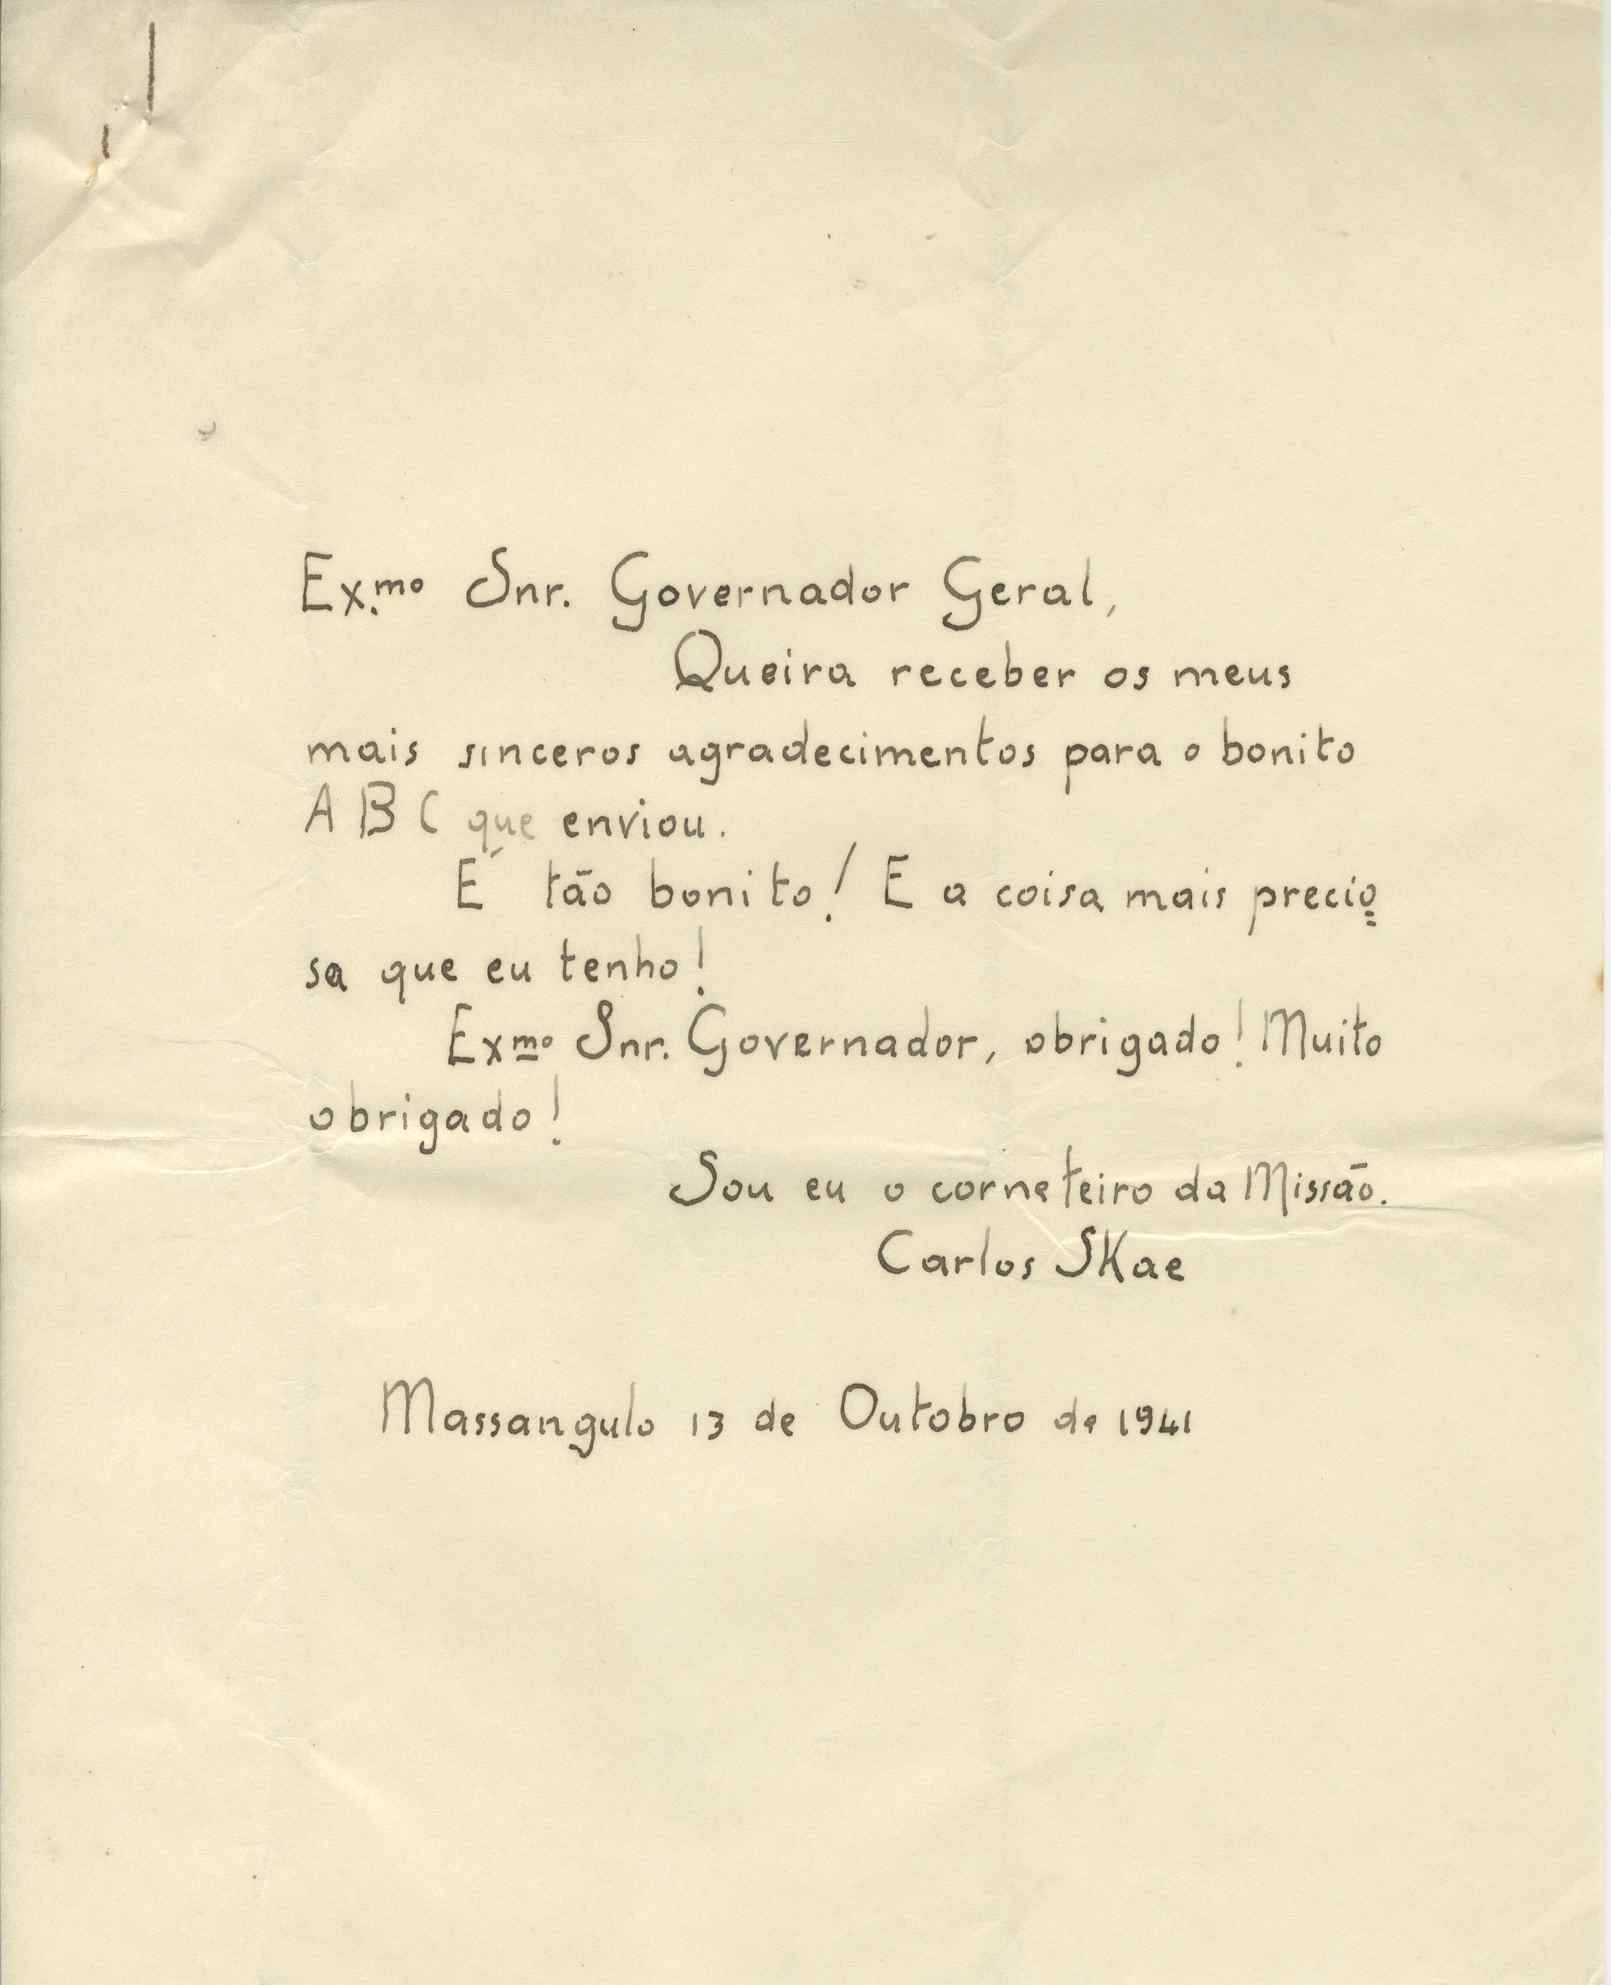 Ex.mo Snr. Governador Geral,
Queira receber os meus
mais sinceros agradecimentos para o bonito
A B C que enviou.
É tão bonito! E a coisa mais precio=
sa que eu tenho!
Exmo Snr. Governador, obrigado! Muito
obrigado!
Sou eu o corneteiro da Missão.
Carlos SKae
Massangulo 13 de Outubro de 1941